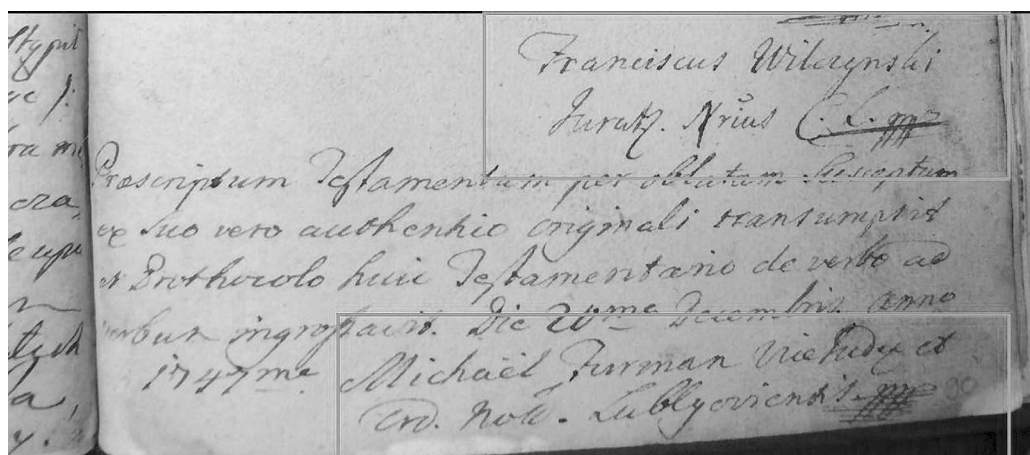 Franciscus Wilczynski
Juratq. Nrius C. L. mp
Præscriptum Testamentum per oblatam Susceptum
ex Suo vero authentico originali transumpsit
et Prothocolo huic Testamentario de verbo ad
verbum ingrossavit. Die 20ma Decembris anno
1747mo Michaël Furman ViceJudex et
Ord. Nott. Lublyoviensis mp